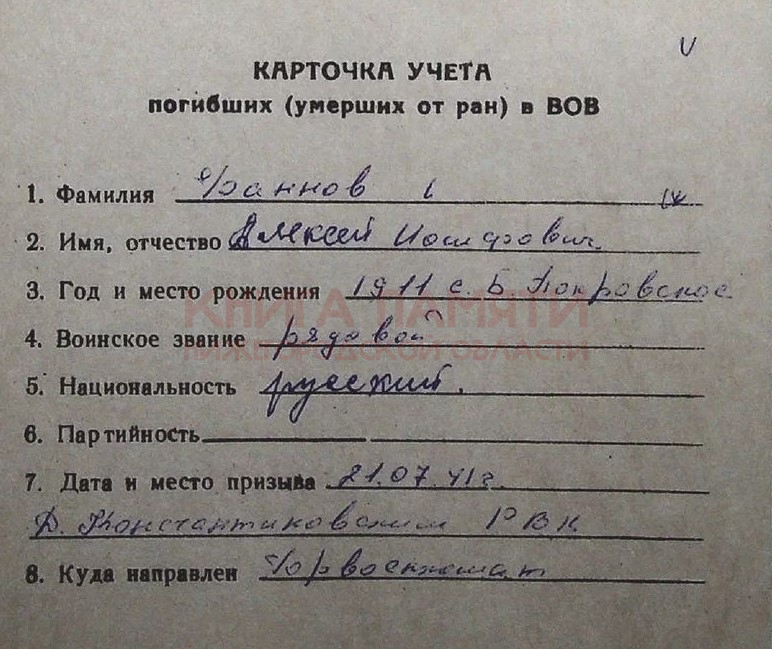 КАРТОЧКА УЧЕТА
погибших (умерших от ран) в ВОВ
1. Фамилия
2. Имя, отчество Алексей Иосифович
3. Год и место рождения 1911 с. Б. Покровское
КНИГА ПАМЯТИ
4. Воинское звание рядовой
НИЖЕГОРОДСКОЙ ОБЛАСТИ
5. Национальность русский.
6. Партийность
7. Дата и место призыва 21.07.41г.
Д. Константиновским РВК
8. Куда направлен Горвоенкомат